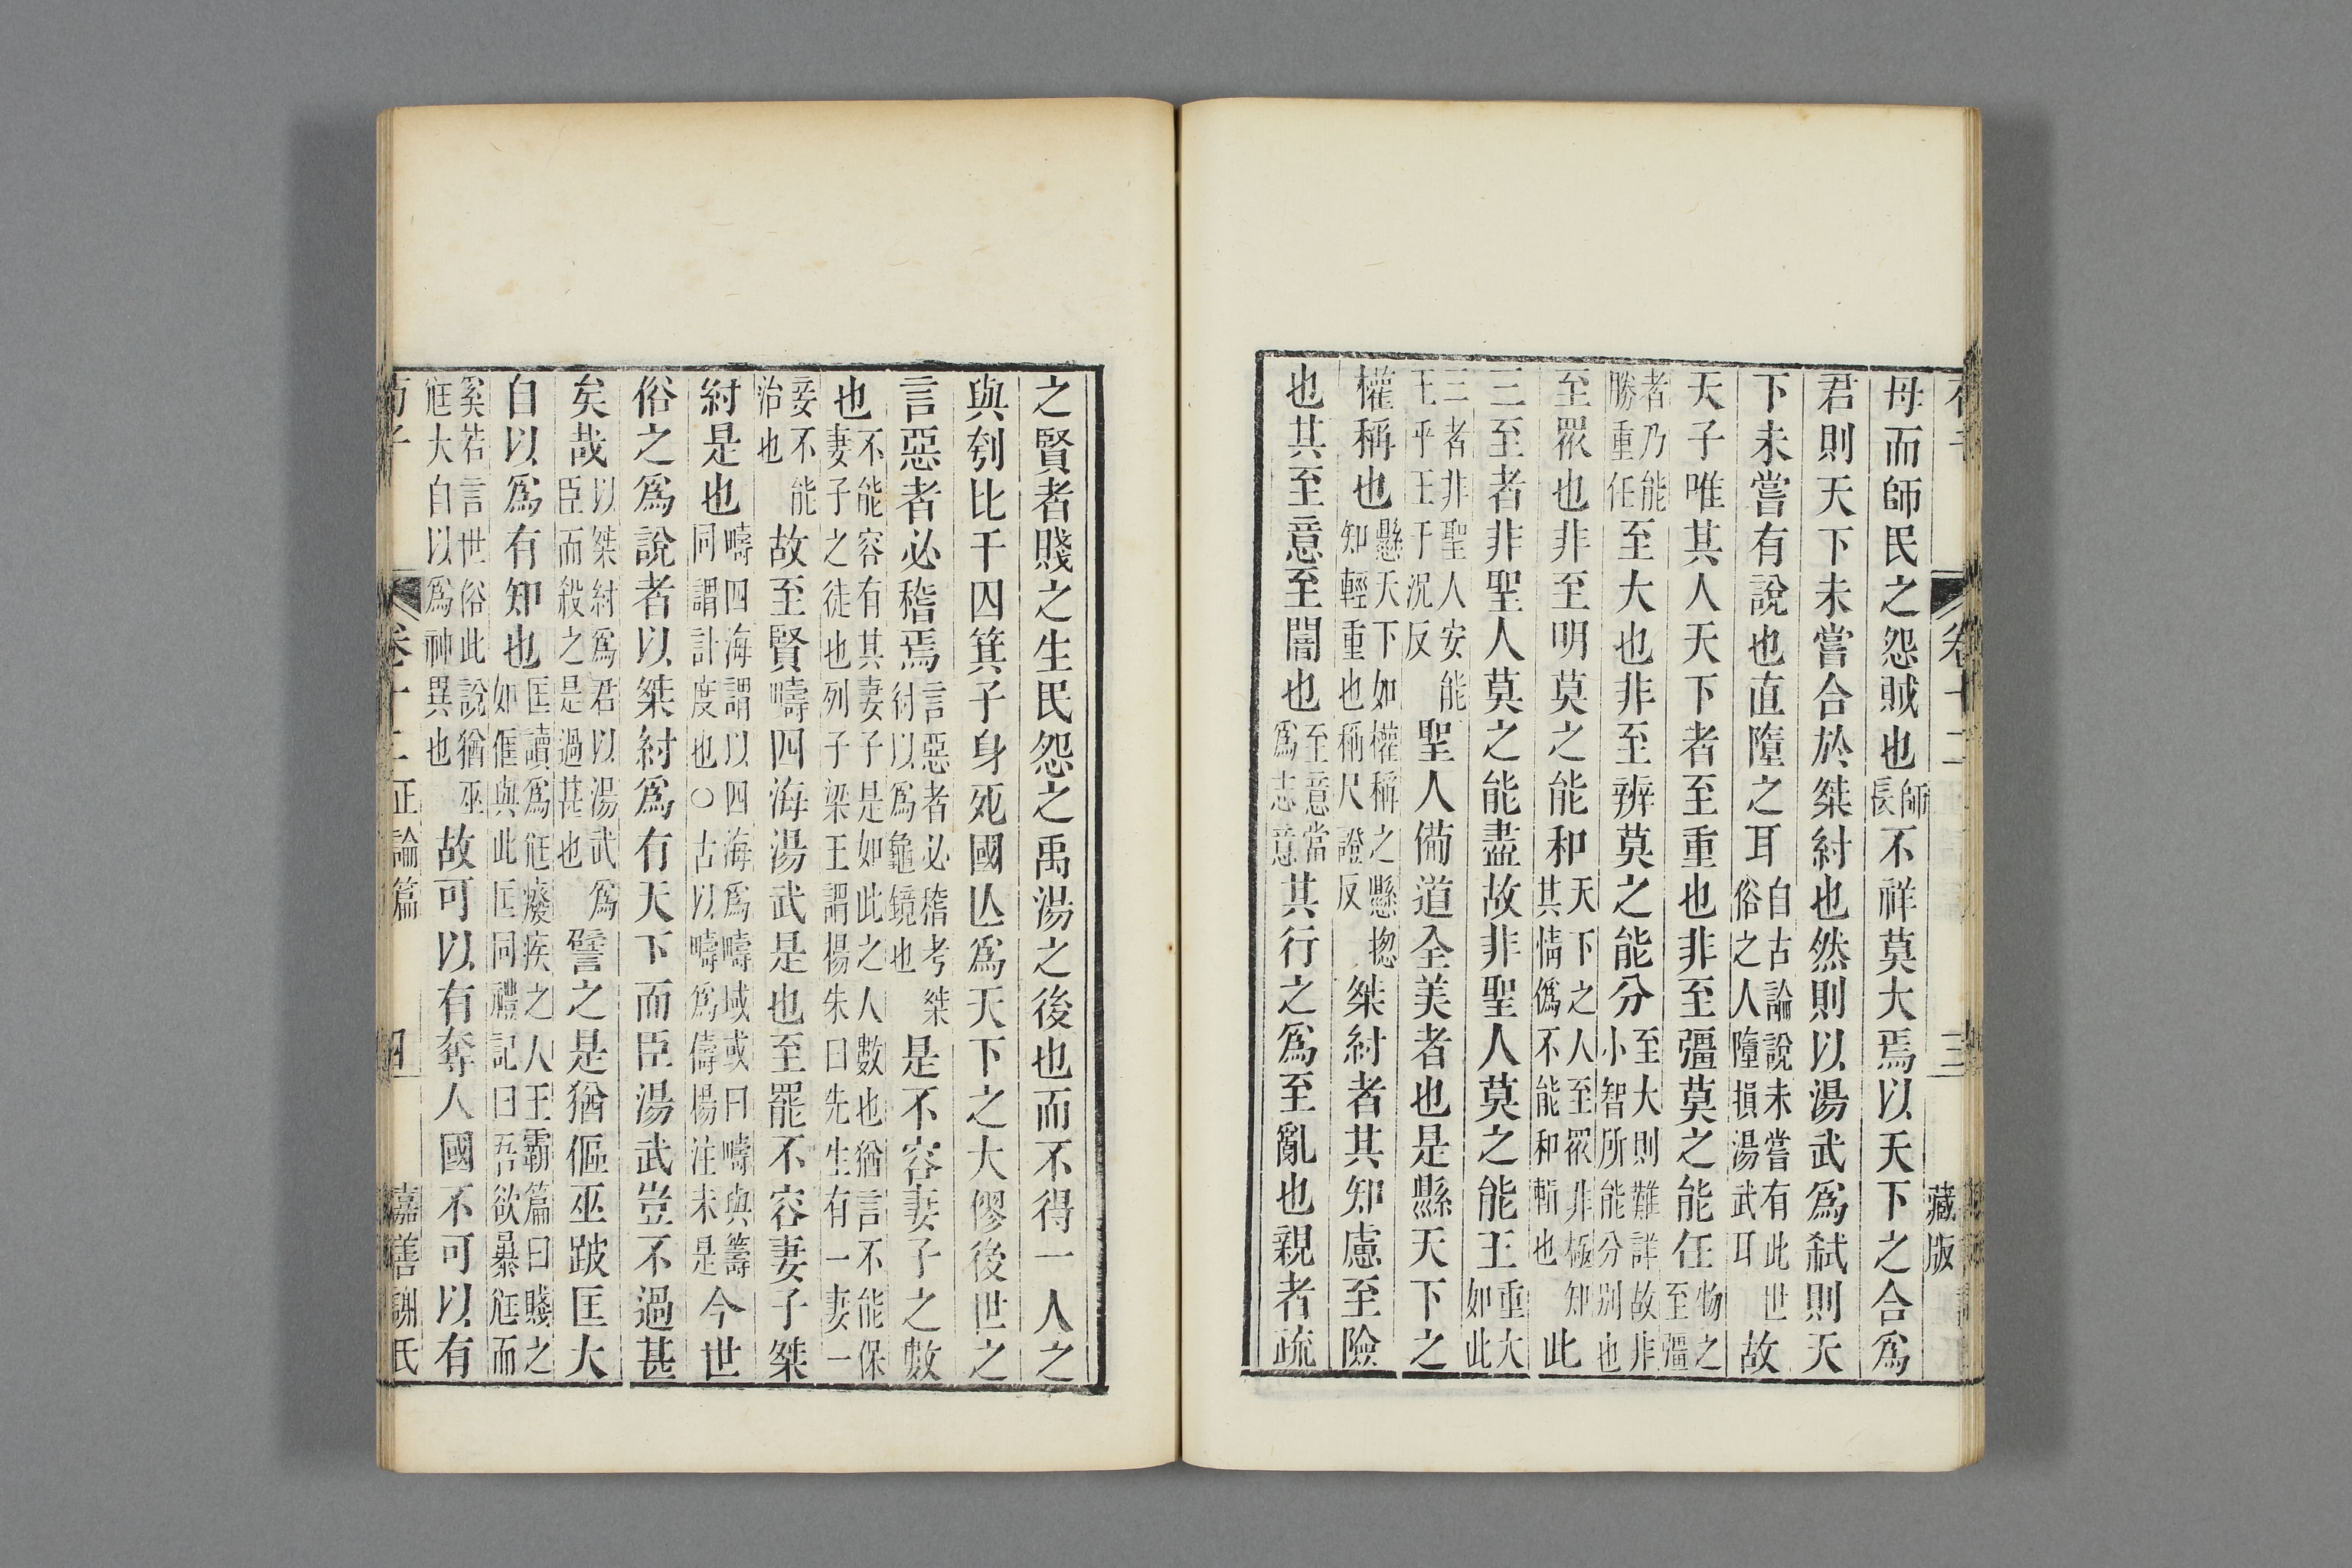 藏版
母而師民之怨賊也師長不祥莫大焉以天下之合爲
君則天下未嘗合於桀紂也然則以湯武爲弒則天
下未嘗有說也直隳之耳自古論說未嘗有此世俗之人隳損湯武耳故
天子唯其人天下者至重也非至彊莫之能任物之至彊
者乃能勝重任至大也非至辨莫之能分至大則難詳故非小智所能分別也
至眾也非至明莫之能和天下之人至眾非極知其情僞不能和輯也此
三至者非聖人莫之能盡故非聖人莫之能王重大如此
三者非聖人安能王乎王于況反聖人備道全美者也是縣天下之
權稱也懸天下如權稱之懸揔知輕重也稱尺證反桀紂者其知慮至險
也其至意至闇也至意當爲志意其行之爲至亂也親者疏
之賢者賤之生民怨之禹湯之後也而不得一人之
與刳比干囚箕子身死國亾爲天下之大僇後世之
言惡者必稽焉言惡者必稽考桀紂以爲龜鏡也是不容妻子之數
也不能容有其妻子是如此之人數也猶言不能保妻子之徒也列子梁王謂楊朱曰先生有一妻一
妾不能治也故至賢疇四海湯武是也至罷不容妻子桀
紂是也疇四海謂以四海爲疇域或曰疇與籌同謂計度也○古以疇爲儔楊注未是今世
俗之爲說者以桀紂爲有天下而臣湯武豈不過甚
矣哉以桀紂爲君以湯武爲臣而殺之是過甚也譬之是猶傴巫跛匡大
自以爲有知也匡讀爲尪癈疾之人王霸篇曰賤之如㑌與此匡同禮記曰吾欲暴尪而
奚若言世俗此說猶巫尪大自以爲神異也故可以有奪人國不可以有
荀子 卷十二 正論篇 四 嘉善謝氏